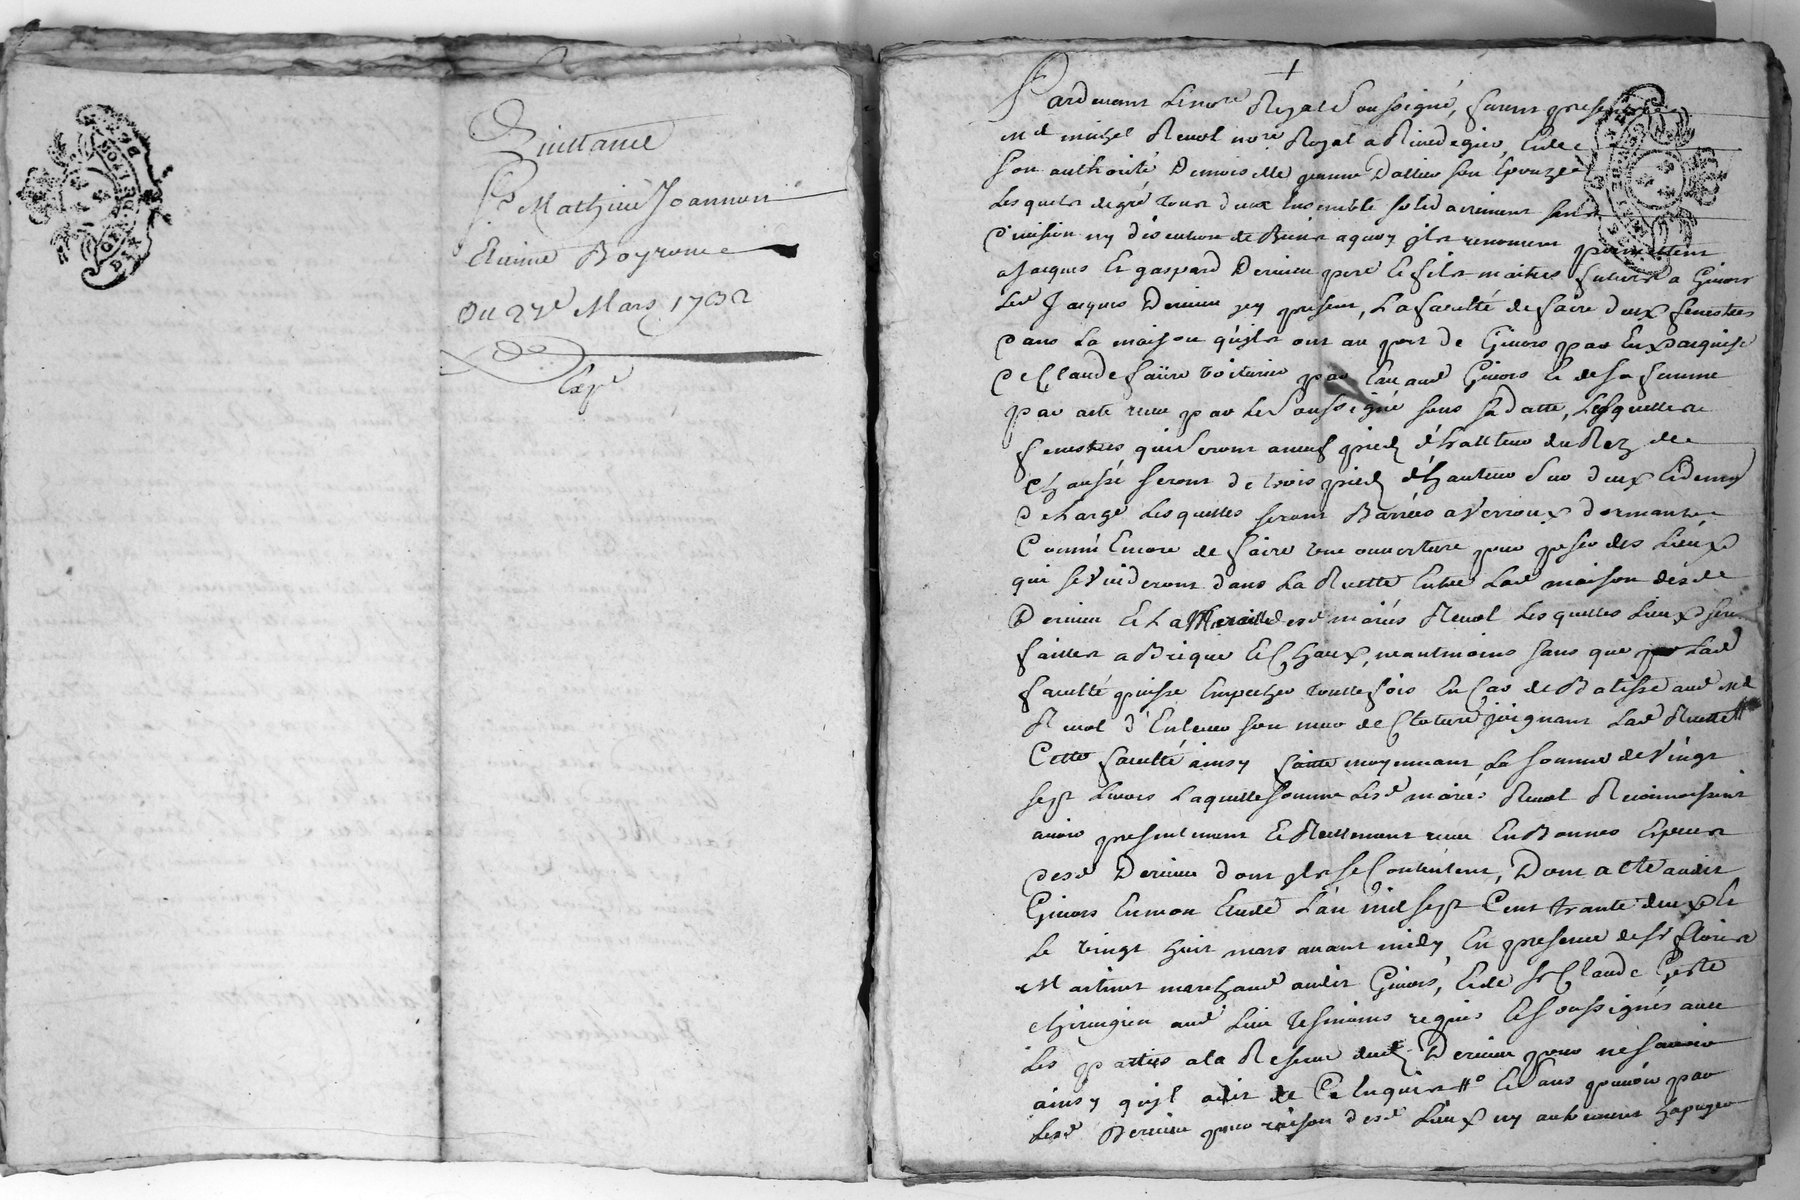 Quittance
Sr Mathieu Joannon
Etienne Boyron
Du 27e Mars 1732
Expé
GEN DE LYON
Pardevant le nore Royal Soussigné, furent presents
Me michel Revol nore Royal a Rivedegier, et de
son authorité Demoiselle jeanne Dallier son Epouze
Lesquels de gré tous deux Ensemble solidairement sans
division ny discution de Biens a quoy ils renoncent permettent
a Jacques Et gaspard Dervieu pere et fils maitres a Givors
Led Jacques Dervieu icy present, La faculté de faire deux fenestres
dans La maison quils ont au port de Givors par Eux acquise
de Claude faure voiturier par Eau aud Givors Et de sa femme
par acte receu par Le Soussigné sous sa datte, Lesquelles
fenestres qui seront a neuf pieds d'hautteur du Rez de
chaussé seront de trois pieds d'hauteur sur deux et demy
de Large Lesquelles seront Barrées a Verroux dormants
Comme Encore de faire une ouverture pour poser des Lieux
qui se vuideront dans La Ruette Entre Lad maison desd
Dervieu Et La Muraille desd mariés Revol Lesquelles Lieux seront
faittes a Brique et Chaux, neantmoins sans que par Lad
faculté puisse Empecher touttefois En Cas de Batisse aud Me
Revol d'Enlever son mur de Cloture joignant Lad Ruette
Cette faculté ainsy faitte moyennant La somme de vingt
sept Livres Laquelle somme Lesd mariés Revol Reconnoissent
avoir presentement Et Reellement receu En Bonnes Especes
desd Dervieu dont ils se Contentent, Dont acte audit
Givors En mon Etude L'an mil sept Cent trante deux le
Le vingt huit mars avant midy En presence de sr
Martinet marchand audit Givors, Et de Sr Claude Geste
chirurgien aud Lieu tesmoins requis Et Soussignés avec
Les parties a la Reserve dud Dervieu pour ne sçavoir
ainsy quil a dit de Ce Enquis Et sans pouvoir par
Lesd Dervieu pour raison desd Lieux ny autrement